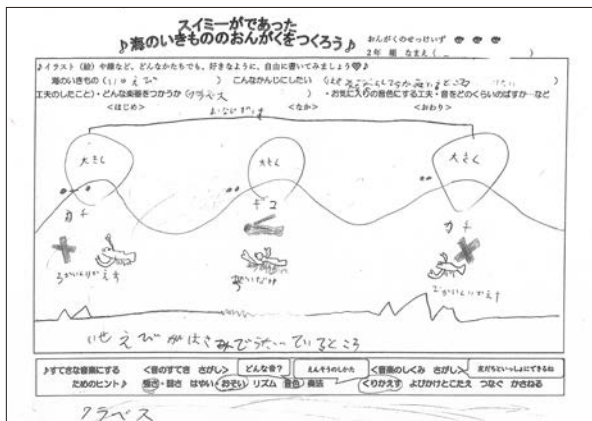 スイミーがであった
♪海のいきもののおんがくをつくろう♪
おんがくのせっけいず
2年 組 なまえ（ ）
♪イラスト（絵）や線など、どんなかたちでも、好きなように、自由に書いてみましょう♡♪
海のいきもの（いせえび） こんなかんじにしたい（
工夫のしたこと）・どんな楽器をつかうか（クラベス ）・お気に入りの音色にする工夫・音をどのくらいのばすか…など
<はじめ> <なか> <おわり>
大きく 大きく 大きく
カチ ギコ カチ
3かいくりかえす
2かいくりかえす
いせえびがはさみでうたっているところ
♪すてきな音楽にする <音のすてき さがし> どんな音? えんそうのしかた <音楽のしくみ さがし> 友だちといっしょにできるね
ためのヒント♪ 強さ・弱さ はやい・おそい リズム 音色 奏法 くりかえす よびかけとこたえ つなぐ かさねる
クラベス